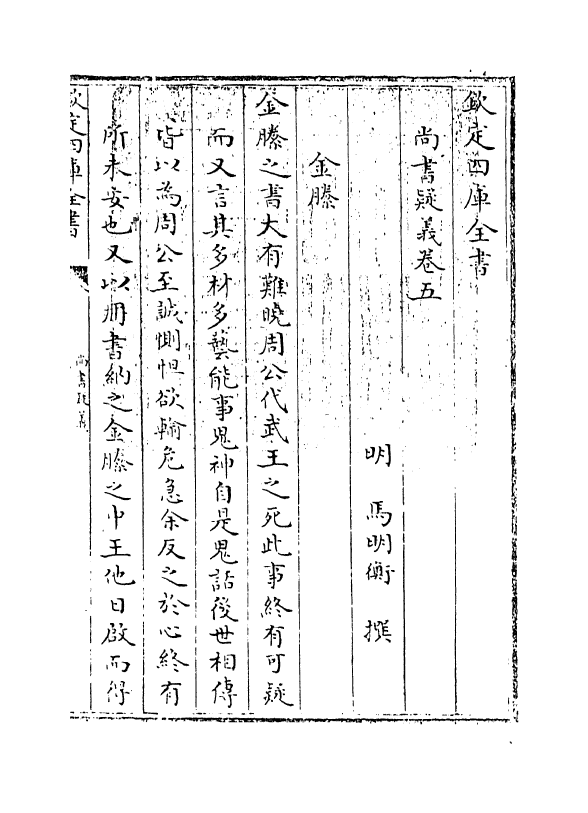 欽定四庫全書
尚書疑義卷五
明 馬明衡 撰
金縢
金縢之書大有難曉周公代武王之死此事終有可疑
而又言其多材多藝能事鬼神自是鬼話後世相傳
皆以為周公至誠惻怛欲輸危急余反之於心終有
所未安也又以冊書納之金縢之中王他日啟而得
欽定四庫全書
尚書疑義